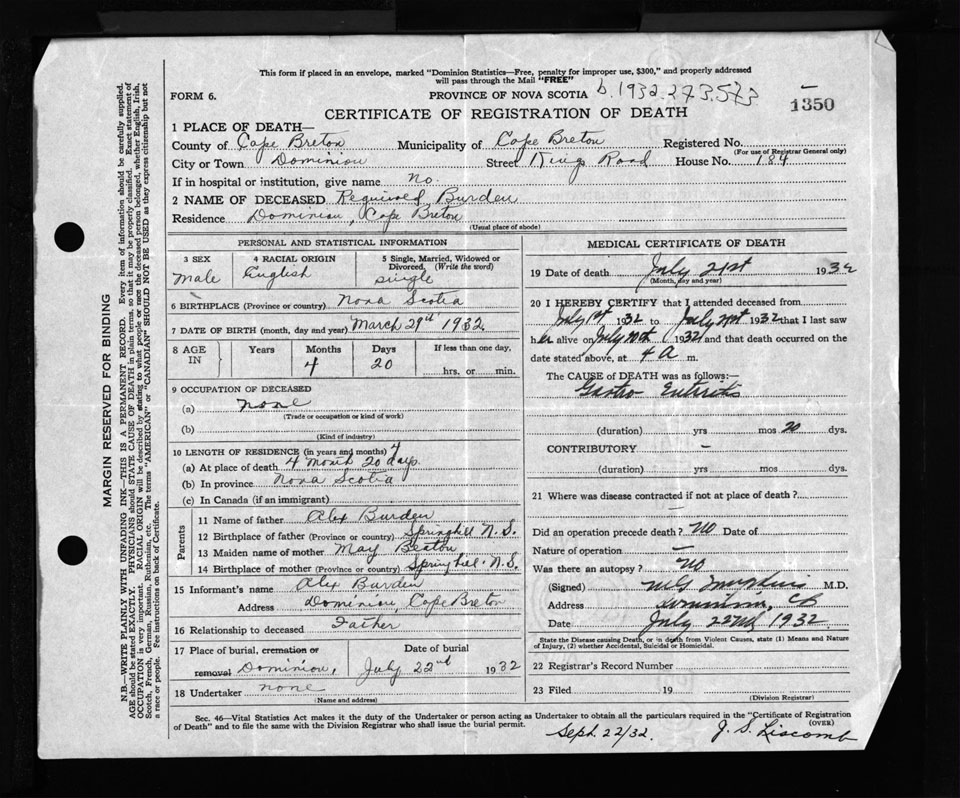 This form if placed in an envelope, marked "Dominion Statistics—Free, penalty for improper use, $300," and properly addressed
will pass through the Mail "FREE"
FORM 6.
PROVINCE OF NOVA SCOTIA b. 1932.273.573
1350
CERTIFICATE OF REGISTRATION OF DEATH
1 PLACE OF DEATH—
County of Cape Breton Municipality of Cape Breton Registered No.
(For use of Registrar General only)
City or Town Dominion Street Kings Road House No. 184
If in hospital or institution, give name no.
2 NAME OF DECEASED Burden
Residence Dominion, Cape Breton
(Usual place of abode)
PERSONAL AND STATISTICAL INFORMATION
3 SEX 4 RACIAL ORIGIN 5 Single, Married, Widowed or
Divorced, (Write the word)
male English single
6 BIRTHPLACE (Province or country) Nova Scotia
7 DATE OF BIRTH (month, day and year) March 1932
8 AGE IN Years Months Days If less than one day,
4 20 hrs. or min.
9 OCCUPATION OF DECEASED
(a) none
(Trade or occupation or kind of work)
(b)
(Kind of industry)
10 LENGTH OF RESIDENCE (in years and months) 4
(a) At place of death 4 month 20 days.
(b) In province Nova Scotia
(c) In Canada (if an immigrant)
Parents
11 Name of father Alex Burden
12 Birthplace of father (Province or country) Springhill N.S.
13 Maiden name of mother May Beaton
14 Birthplace of mother (Province or country) Springhill N.S.
15 Informant's name Alex Burden
Address Dominion, Cape Breton
16 Relationship to deceased Father
17 Place of burial, cremation or Date of burial
removal Dominion, July 22nd 1932
18 Undertaker none
(Name and address)
MEDICAL CERTIFICATE OF DEATH
19 Date of death July 21st 1932
(Month, day and year)
20 I HEREBY CERTIFY that I attended deceased from
July 1st 1932 to July 21st 1932 that I last saw
her alive on July 1932 and that death occurred on the
date stated above, at 4 A m.
The CAUSE of DEATH was as follows:—
Gastro Enteritis
(duration) yrs mos 20 dys.
CONTRIBUTORY —
(duration) yrs mos dys.
21 Where was disease contracted if not at place of death?
—
Did an operation precede death? No Date of
Nature of operation —
Was there an autopsy? No
(Signed) M.D.
Address Dominion, CB
Date July 22nd 1932
State the Disease causing Death, or in death from Violent Causes, state (1) Means and Nature
of Injury, (2) whether Accidental, Suicidal or Homicidal.
22 Registrar's Record Number
23 Filed 19
(Division Registrar)
Sec. 46—Vital Statistics Act makes it the duty of the Undertaker or person acting as Undertaker to obtain all the particulars required in the "Certificate of Registration
of Death" and to file the same with the Division Registrar who shall issue the burial permit. (OVER)
Sept. 22/32. J. S. Liscomb
MARGIN RESERVED FOR BINDING
N.B.—WRITE PLAINLY WITH UNFADING INK—THIS IS A PERMANENT RECORD. Every item of information should be carefully supplied.
AGE should be stated EXACTLY. PHYSICIANS should STATE CAUSE OF DEATH in plain terms, so that it may be properly classified. Exact statement of
OCCUPATION is very important. RACIAL ORIGIN will be described by stating to what people or race the deceased person belonged, whether English, Irish,
Scotch, French, German, Russian, Ruthenian, etc. The terms "AMERICAN" or "CANADIAN" SHOULD NOT BE USED as they express citizenship but not
a race or people. Fee instructions on back of Certificate.